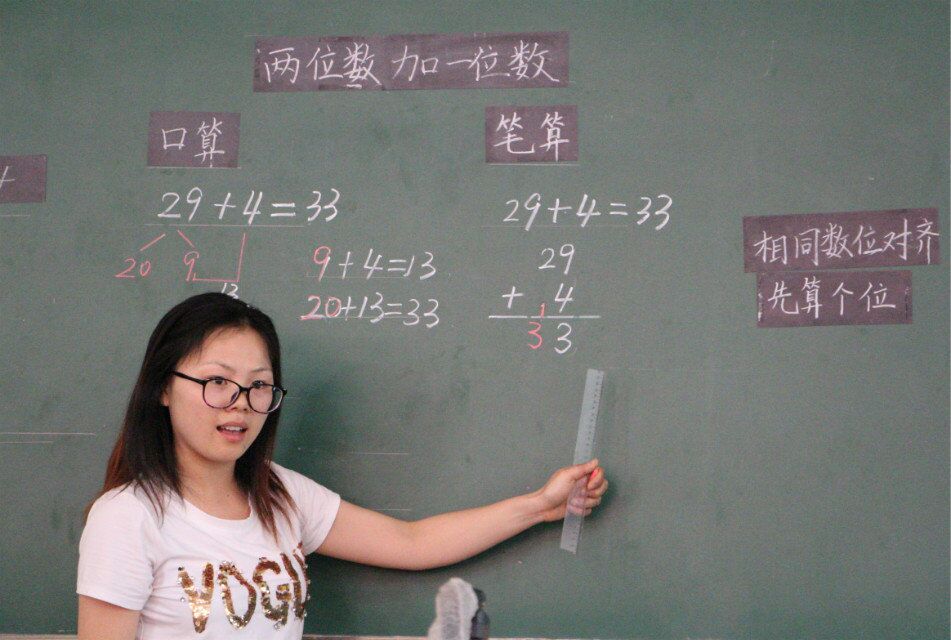 两位数加一位数
口算
29+4=33
20 9
13
9+4=13
20+13=33
笔算
29+4=33
29
+ 4
1
33
相同数位对齐
先算个位